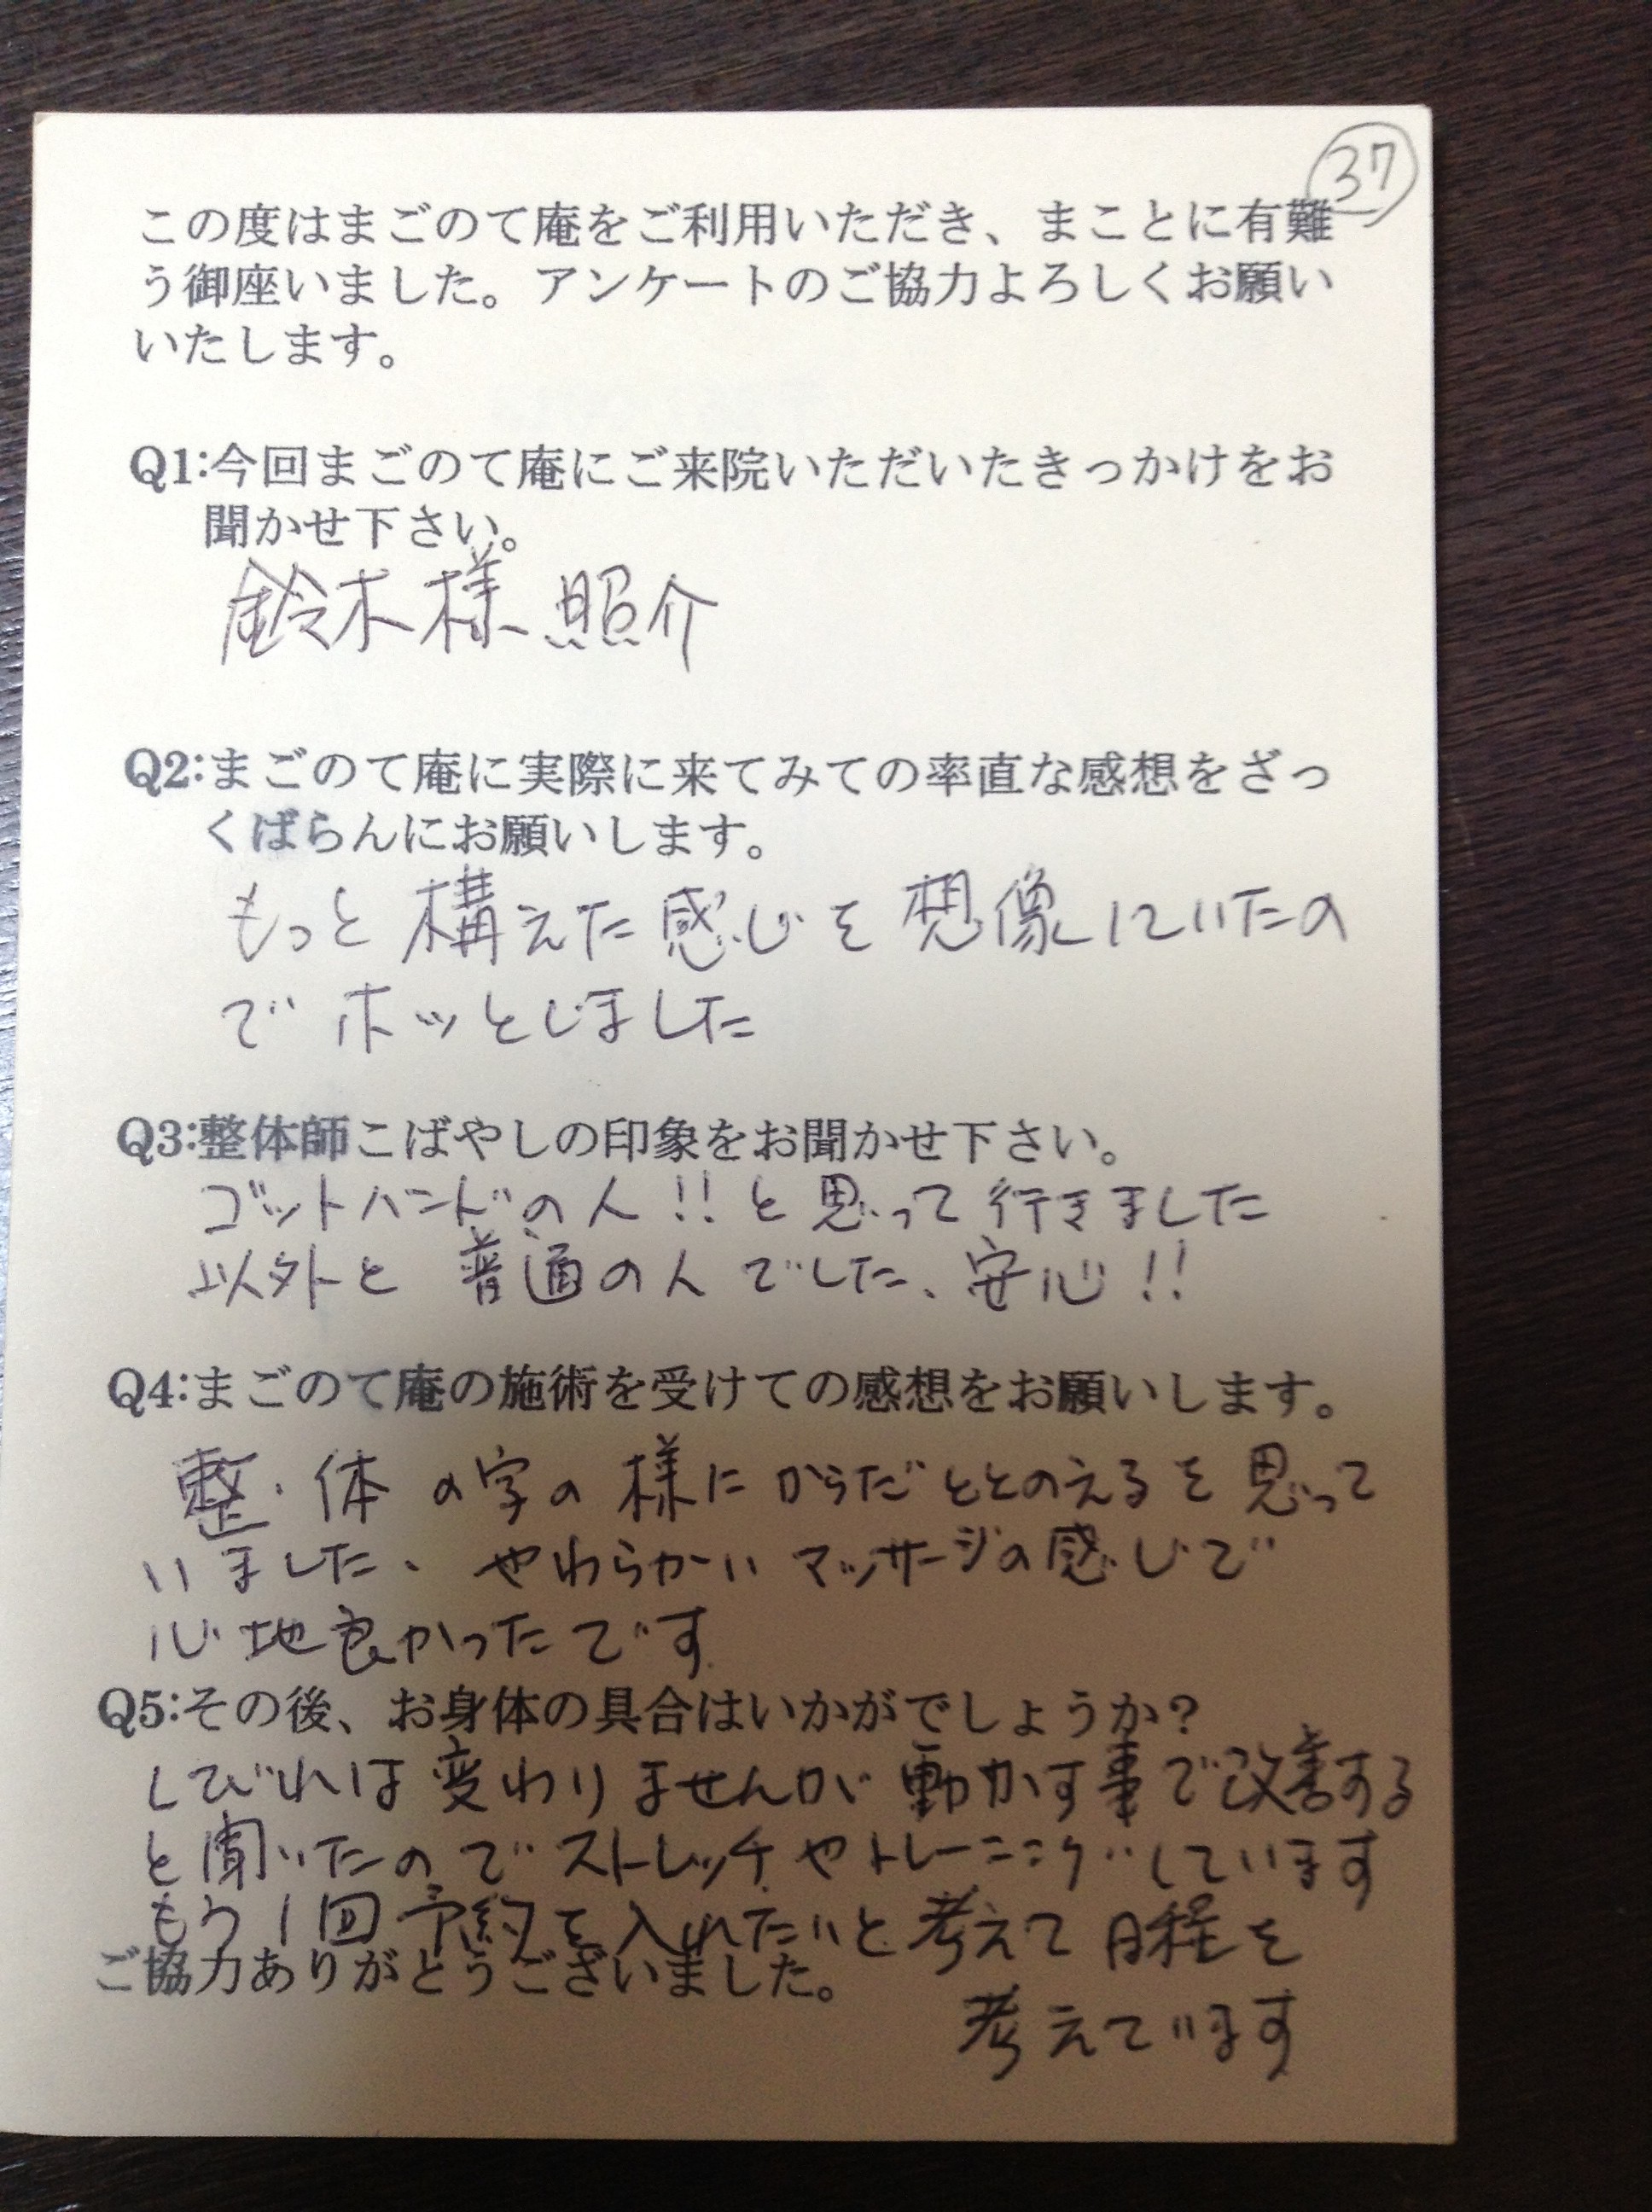 37
この度はまごのて庵をご利用いただき、まことに有難
う御座いました。アンケートのご協力よろしくお願い
いたします。
Q1:今回まごのて庵にご来院いただいたきっかけをお
聞かせ下さい。
鈴木様 照介
Q2:まごのて庵に実際に来てみての率直な感想をざっ
くばらんにお願いします。
もっと構えた感じを想像していたの
でホッとしました
Q3:整体師こばやしの印象をお聞かせ下さい。
ゴットハンドの人!!と思って行きました
以外と普通の人でした、安心!!
Q4:まごのて庵の施術を受けての感想をお願いします。
整・体の字の様にからだととのえるを思って
いました、やわらかいマッサージの感じで
心地良かったです
Q5:その後、お身体の具合はいかがでしょうか?
しびれは変わりませんが動かす事で改善する
と聞いたのでストレッチやトレーニングしています
もう1回予約を入れたいと考えて日程を
ご協力ありがとうございました。
考えています